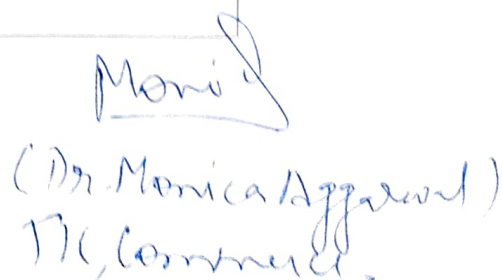 Moni
(Dr. Monica Aggarwal)
TIC, Commerce.